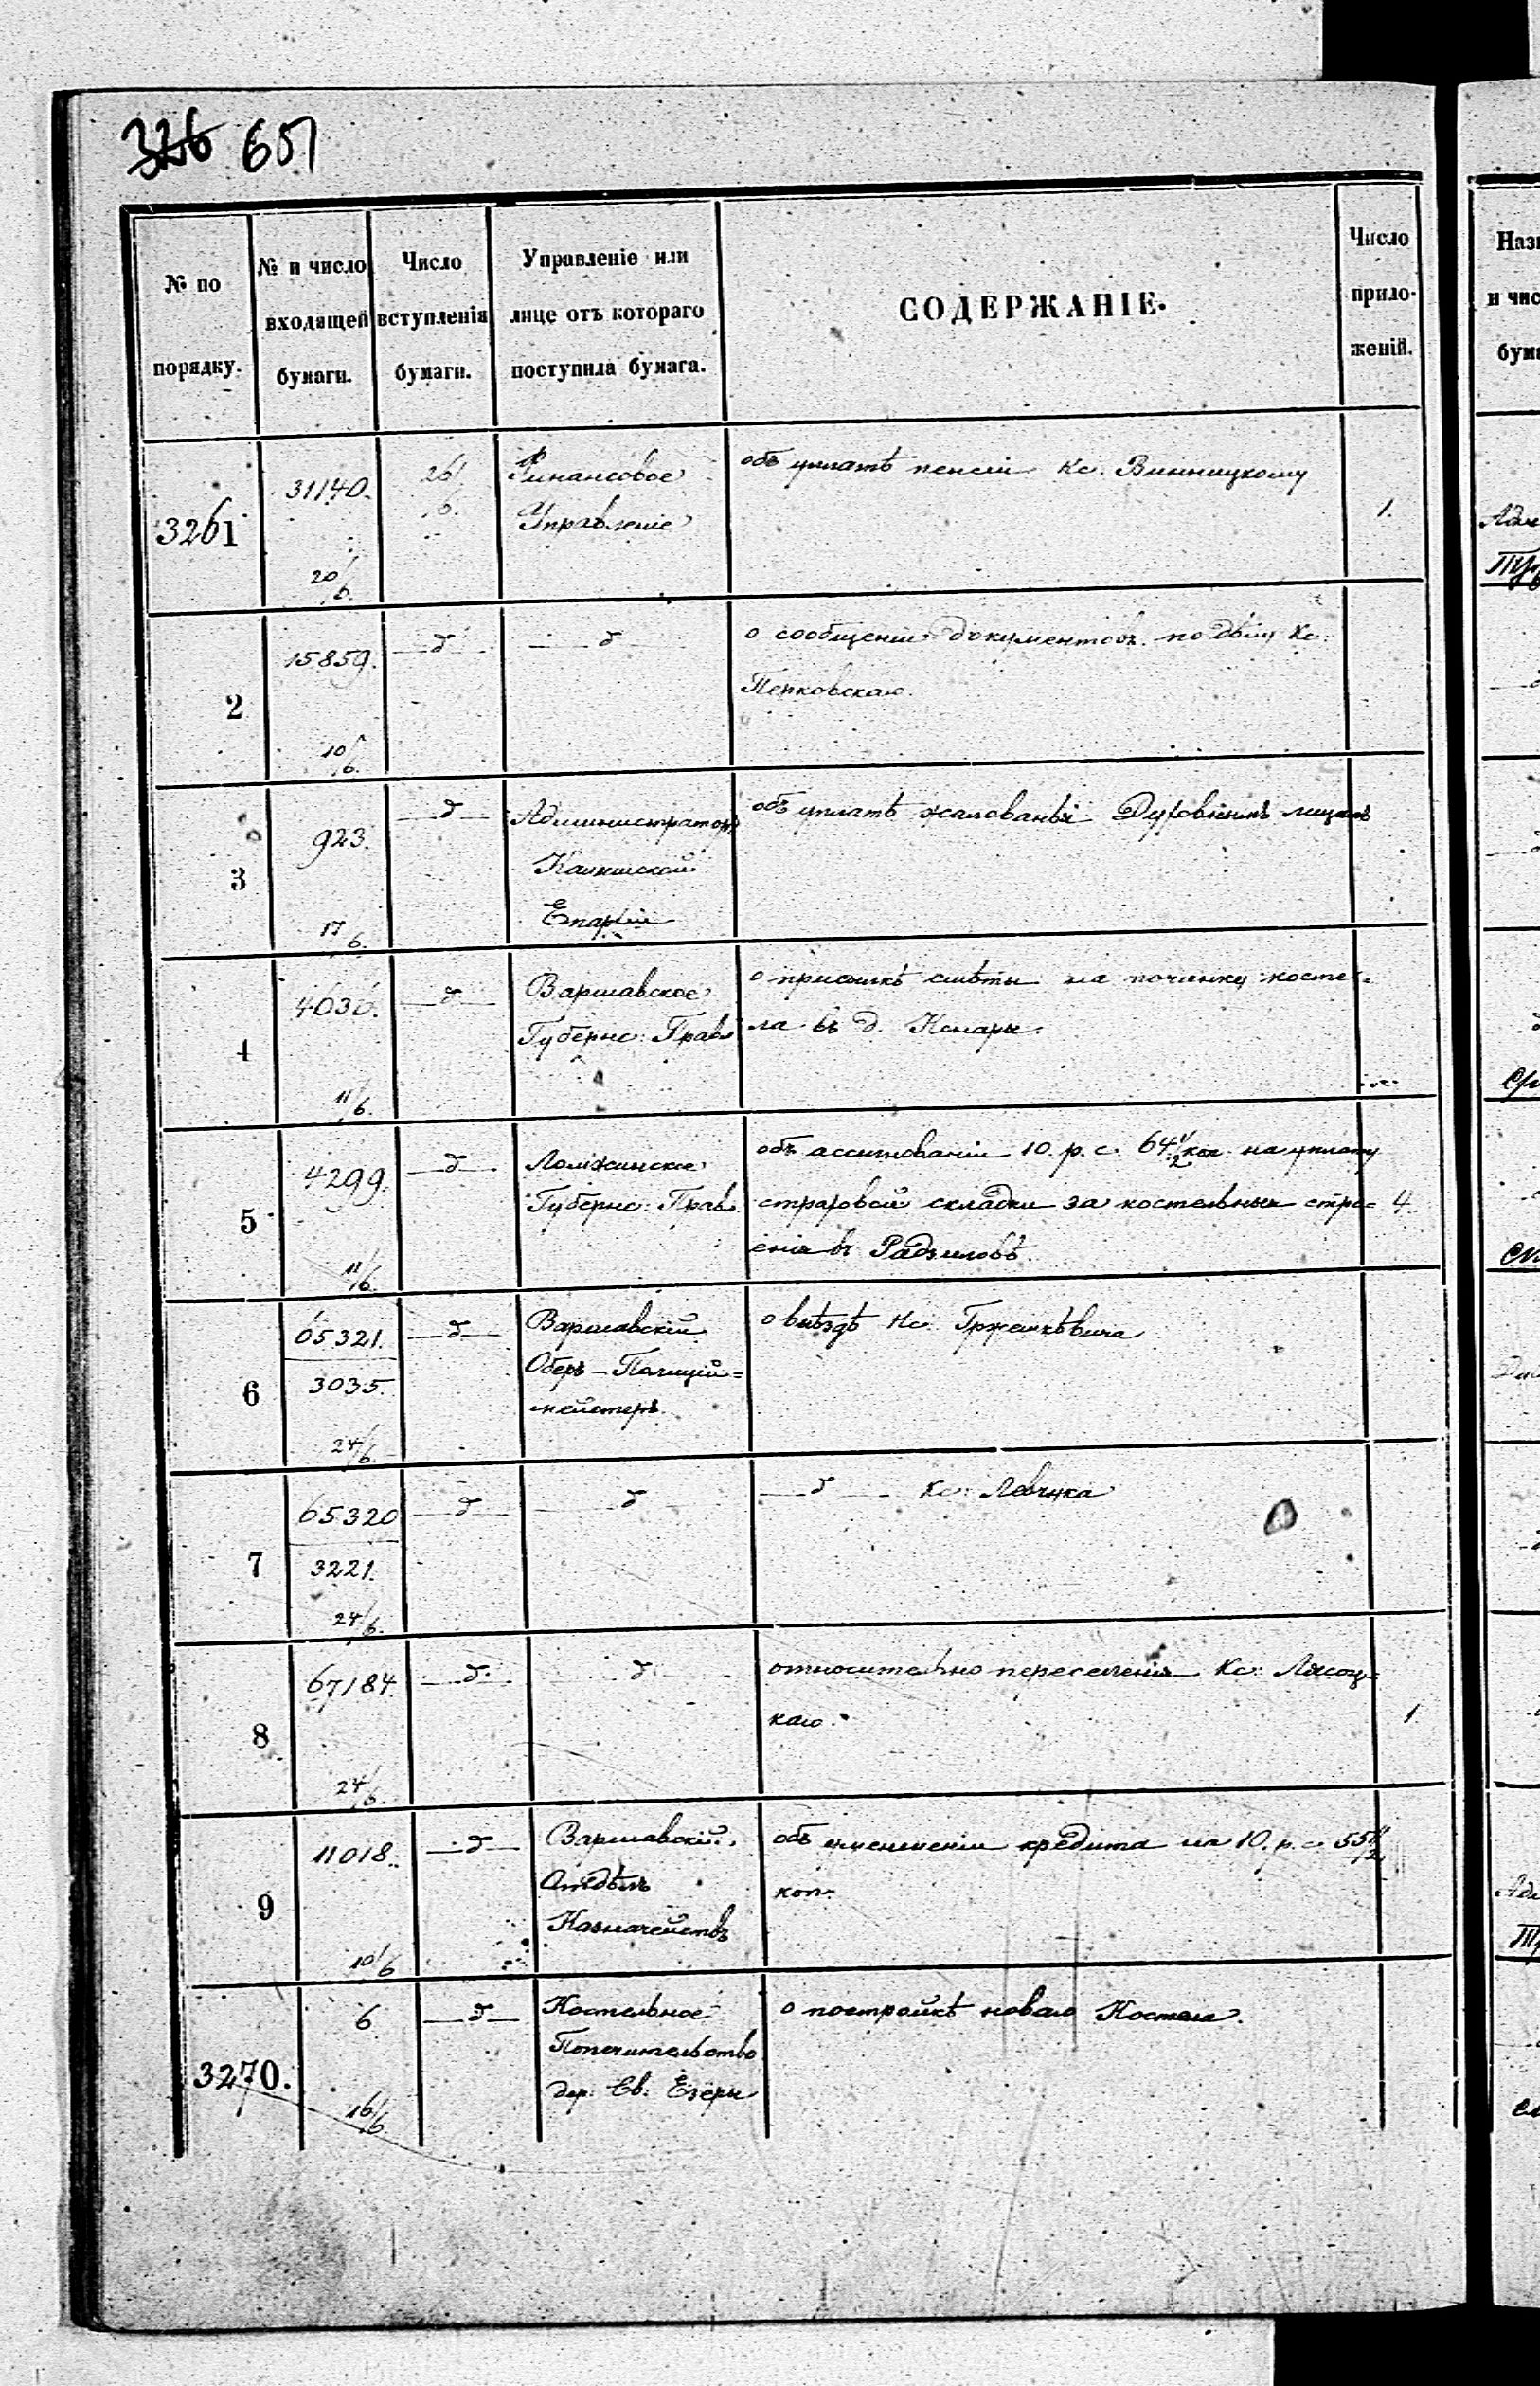 326 651
№ по
порядку.
№ и число
входящей
бумаги.
Число
вступленія
бумаги.
Управленіе или
лице отъ котораго
поступила бумага.
СОДЕРЖАНІЕ.
Число
прило-
женій.
3261
31140.
20/6.
26/6.
Финансовое
Управленіе
объ уплатѣ пенсіи Кс. Винницкому
1.
2
15859.
10/6.
—д—
—д—
о сообщеніи документовъ по дѣлу Кс:
3
923.
17/6.
—д—
Администраторъ
Епархіи
объ уплатѣ жалованья Духовнымъ лицамъ
4
4030.
11/6.
—д—
Варшавское
Губернс: Правл
о присылкѣ смѣты на починку косте-
ла въ д. Конары.
5
4299.
11/6.
—д—
Ломжинское
Губернс: Правл.
объ ассигнованіи 10. р. с. 64 1/2 коп: на уплату
страховой складки за костельныя стро-
енія въ Радзиловѣ.
4.
6
65321.
3035.
24/6.
—д—
Варшавскій
Оберъ-Полицій=
мейстеръ.
о выѣздѣ Кс:
7
65320
3221.
24/6.
—д—
—д—
—д— Кс: Левчука
8
67184.
24/6.
—д—
—д—
относительно переселенія Кс: Лясоц-
каго.
1.
9
11018.
10/6
—д—
Варшавскій
Отдѣлъ
Казначействъ
объ уменьшеніи кредита на 10. р. с. 55 1/2
коп.
3270.
6
16/6
—д—
Костельное
Попечительство
дер: Св: Езеры
о постройкѣ новаго Костела.